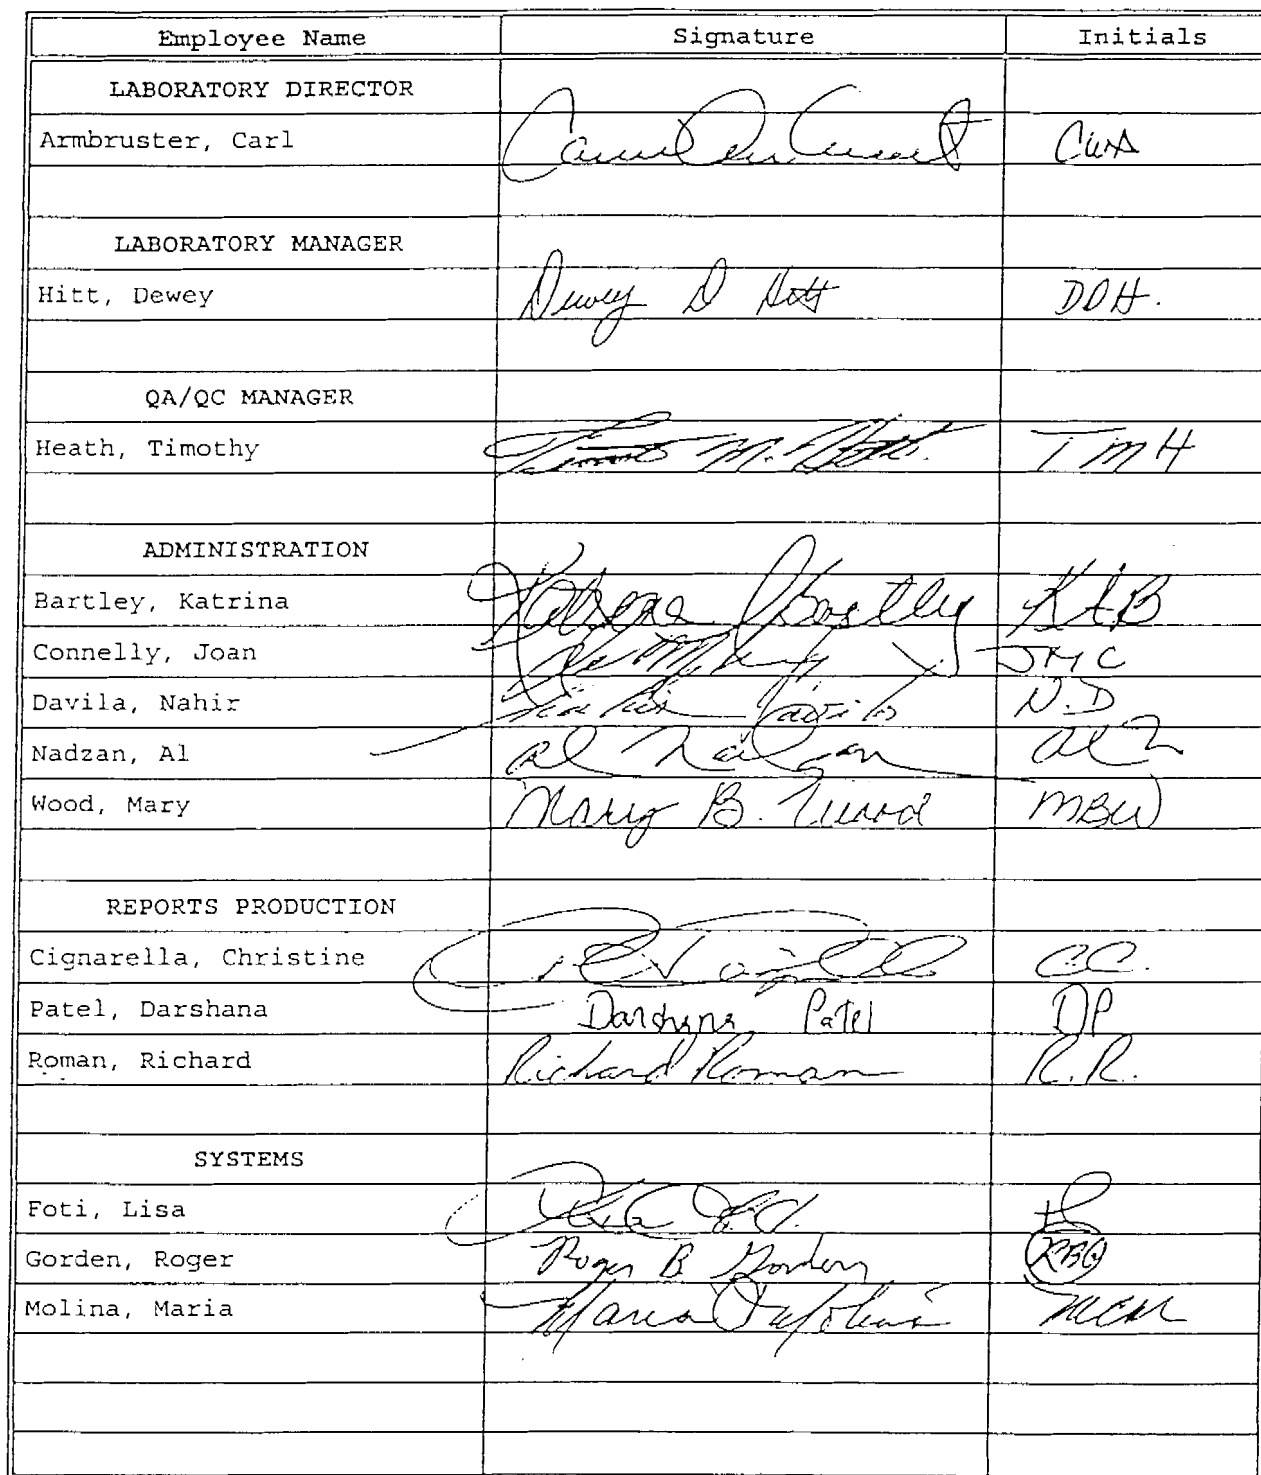 Employee Name Signature Initials
LABORATORY DIRECTOR
Armbruster, Carl CWA
LABORATORY MANAGER
Hitt, Dewey Dewey D Hitt DDH.
QA/QC MANAGER
Heath, Timothy M. TMH
ADMINISTRATION
Bartley, Katrina Katrina Bartley KAB
Connelly, Joan JMC
Davila, Nahir Nahir Davila N.D
Nadzan, Al Al Nadzan
Wood, Mary Mary B. Wood MBW
REPORTS PRODUCTION
Cignarella, Christine C.C.
Patel, Darshana Darshana Patel DP
Roman, Richard Richard Roman R.R.
SYSTEMS
Foti, Lisa
Gorden, Roger Roger B Gorden RBG
Molina, Maria Maria Molina MCM